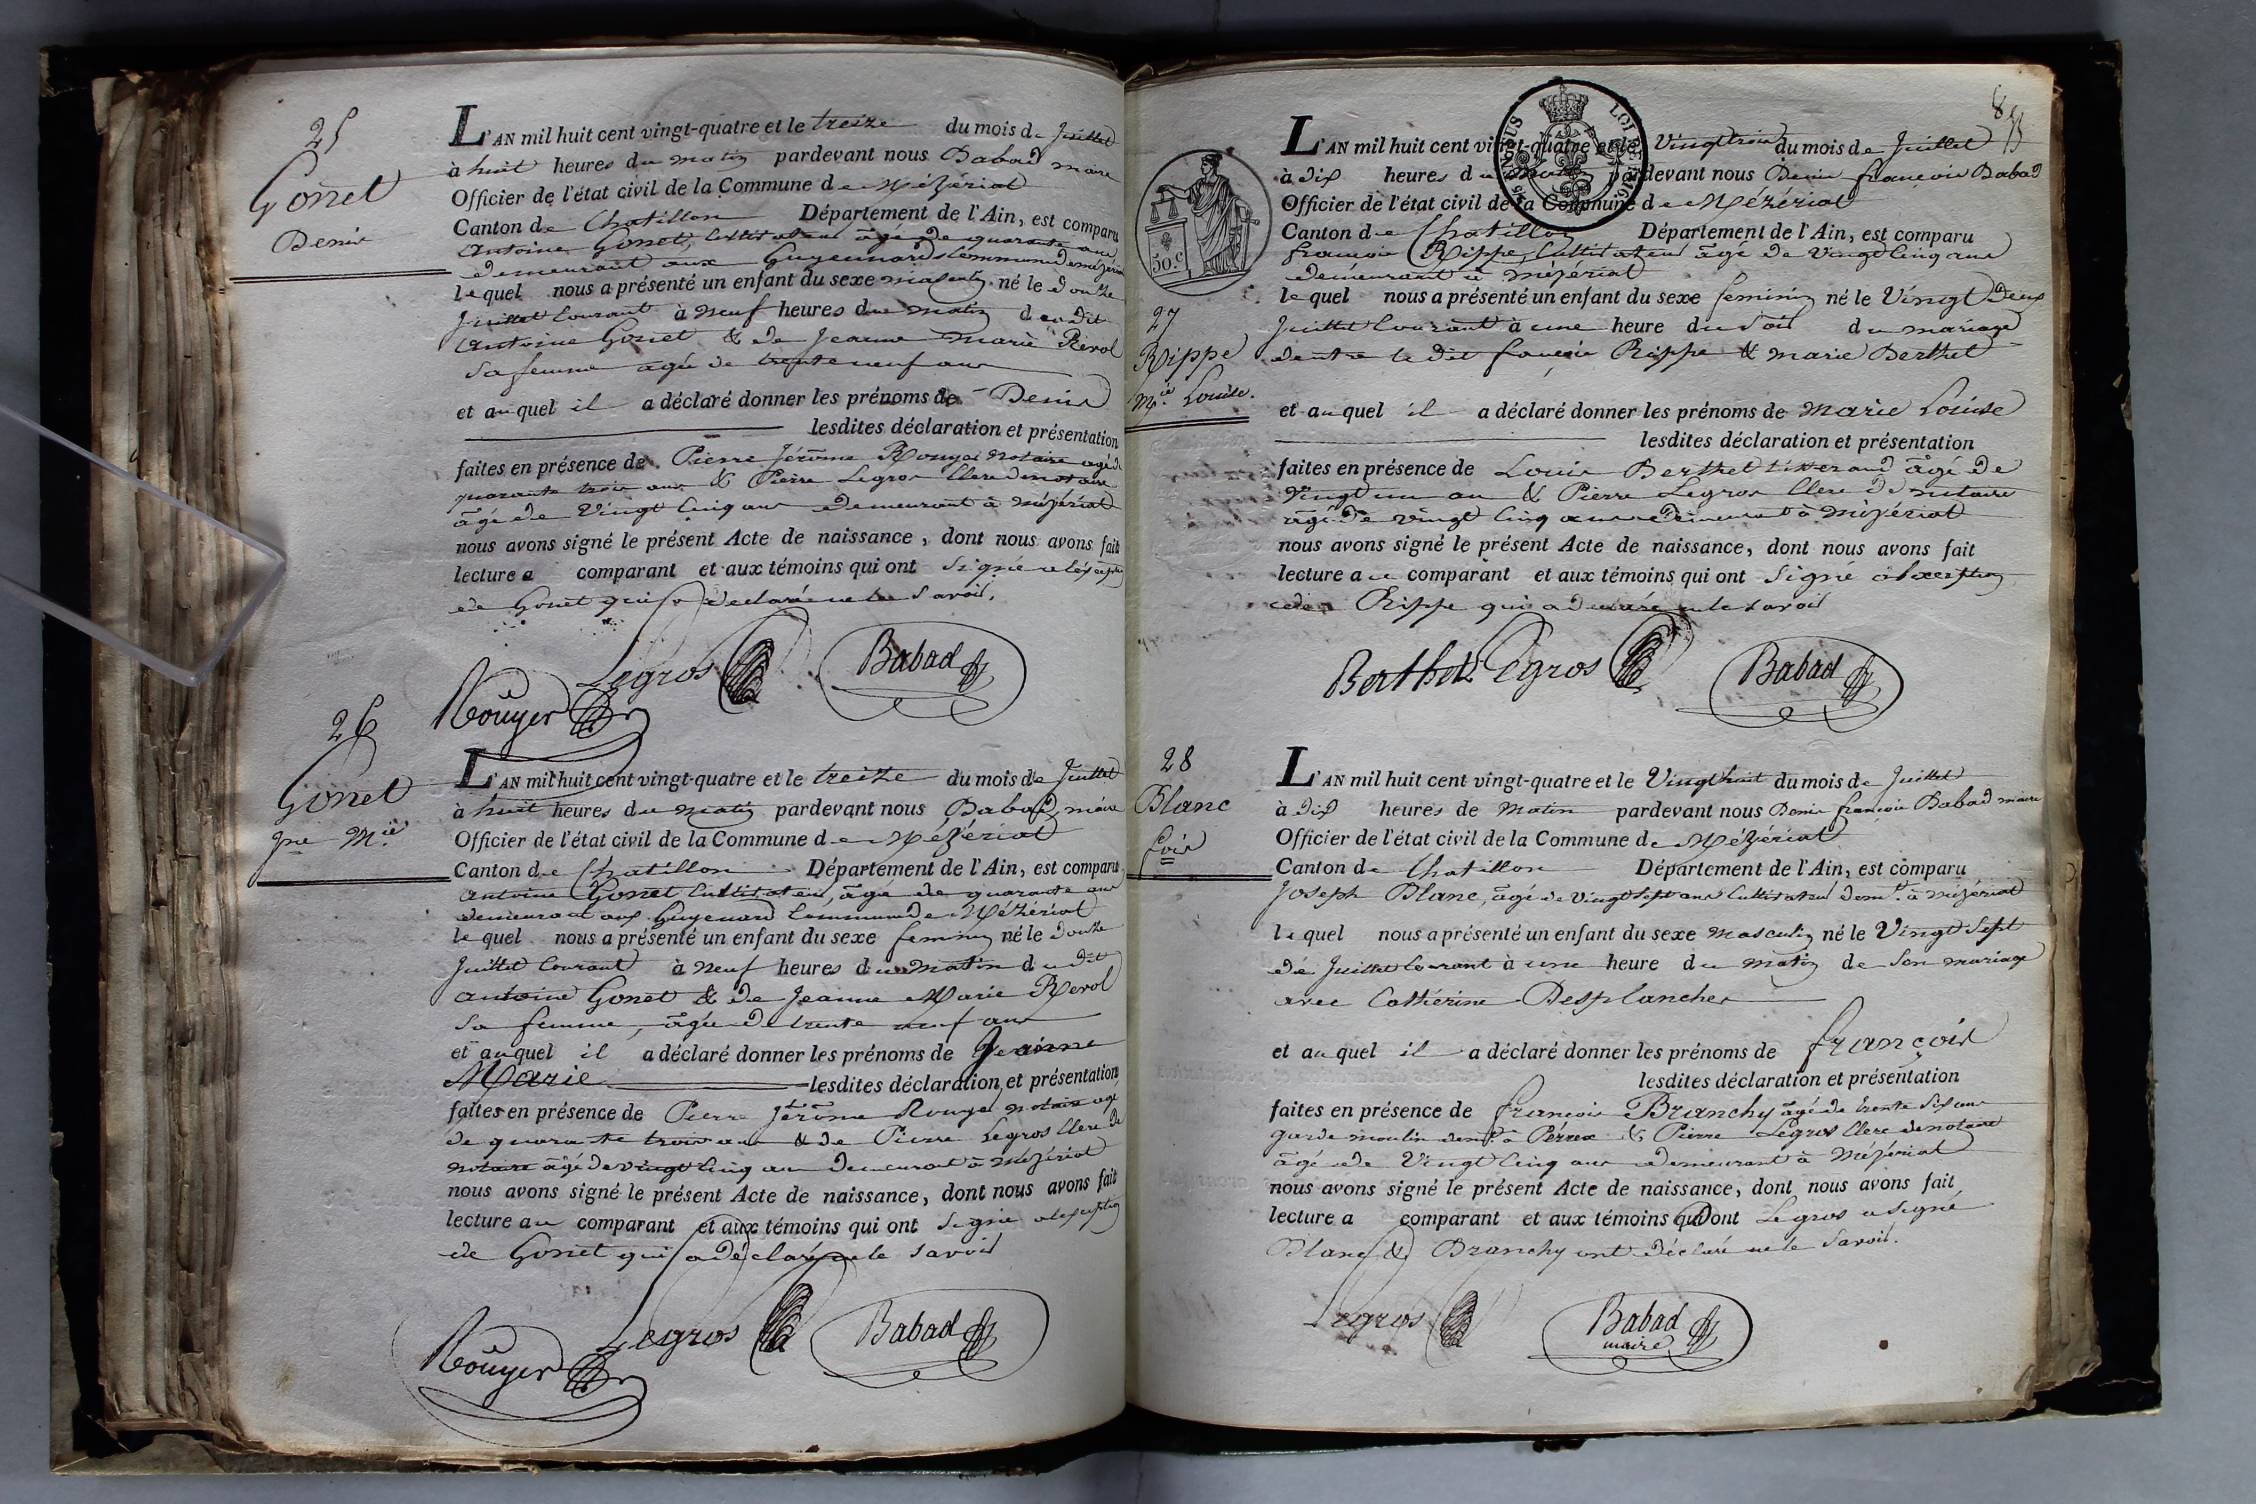 25
Gonet
Denis
L'AN mil huit cent vingt-quatre et le treize du mois de Juillet
à huit heures du matin pardevant nous Babad maire
Officier de l'état civil de la Commune de Mézériat
Canton de Chatillon Département de l'Ain, est comparu
Antoine Gonet, Cultivateur âgé de quarante ans
demeurant aux Guyennards Commune de mézériat
lequel nous a présenté un enfant du sexe masculin né le douze
Juillet Courant à neuf heures du matin dudit
Antoine Gonet & de Jeanne Marie Revol
sa femme agée de trente neuf ans
et auquel il a déclaré donner les prénoms de Denis
lesdites déclaration et présentation
faites en présence de Pierre Jérôme Rouyer notaire agé de
quarante trois ans & Pierre Legros Clerc de notaire
âgé de Vingt Cinq ans demeurant à mézériat
nous avons signé le présent Acte de naissance, dont nous avons fait
lecture a comparant et aux témoins qui ont signé à l'exception
de Gonet qui a declaré ne le savoir.
Rouyer Legros Babad
26
Gonet
Jne Mie
L'AN mil huit cent vingt-quatre et le treize du mois de Juillet
à huit heures du matin pardevant nous Babad, maire
Officier de l'état civil de la Commune de Mézériat
Canton de Chatillon Département de l'Ain, est comparu
Antoine Gonet Cultivateur, âgé de quarante ans
demeurant aux Guyenard Commune de Mézériat
lequel nous a présenté un enfant du sexe feminin né le douze
Juillet Courant à neuf heures du matin dudit
Antoine Gonet & de Jeanne Marie Revol
sa femme, âgée de trente neuf ans
et auquel il a déclaré donner les prénoms de Jeanne
Marie lesdites déclaration et présentation
faites en présence de Pierre Jérôme Rouyer notaire agé
de quarante trois ans & de Pierre Legros Clerc de
notaire âgé de vingt cinq ans demeurant à Mézériat
nous avons signé le présent Acte de naissance, dont nous avons fait
lecture au comparant et aux témoins qui ont signé a lexception
de Gonet qui a déclaré ne le savoir
Rouyer Legros Babad
50.c
27
Rippe
Mie Louise.
L'AN mil huit cent vingt-quatre et le Vingt trois du mois de Juillet
à dix heures du matin pardevant nous Denis françois Babad
Officier de l'état civil de la Commune de Mézériat
Canton de Chatillon Département de l'Ain, est comparu
françois Rippe, Cultivateur âgé de Vingt Cinq ans
demeurant à mézériat
lequel nous a présenté un enfant du sexe feminin né le Vingt Deux
Juillet Courant à une heure du soir du mariage
dentre le dit françois Rippe & marie Berthet
et auquel il a déclaré donner les prénoms de marie Louise
lesdites déclaration et présentation
faites en présence de Louis Berthet tisserand âgé de
Vingt un an & Pierre Legros Clerc de notaire
âgé de vingt cinq ans demeurant à Mézériat
nous avons signé le présent Acte de naissance, dont nous avons fait
lecture au comparant et aux témoins qui ont signé à lexception
de Rippe qui a declaré ne le savoir
Berthet Legros Babad
28
Blanc
fçois
L'AN mil huit cent vingt-quatre et le Vingt huit du mois de Juillet
à dix heures de matin pardevant nous Denis françois Babad maire
Officier de l'état civil de la Commune de Mézériat
Canton de Chatillon Département de l'Ain, est comparu
Joseph Blanc, âgé de Vingt sept ans Cultivateur demt. à mézériat
lequel nous a présenté un enfant du sexe masculin né le Vingt Sept
de Juillet Courant à une heure du matin de son mariage
avec Cathérine Desplanches
et auquel il a déclaré donner les prénoms de françois
lesdites déclaration et présentation
faites en présence de françois Branchy âgé de trente six ans
garde moulin demt. à Perrex & Pierre Legros Clerc de notaire
âgé de Vingt Cinq ans demeurant à Mézériat
nous avons signé le présent Acte de naissance, dont nous avons fait
lecture a comparant et aux témoins qui ont Legros a signé
Blanc & Branchy ont déclaré ne le savoir.
Legros Babad
maire